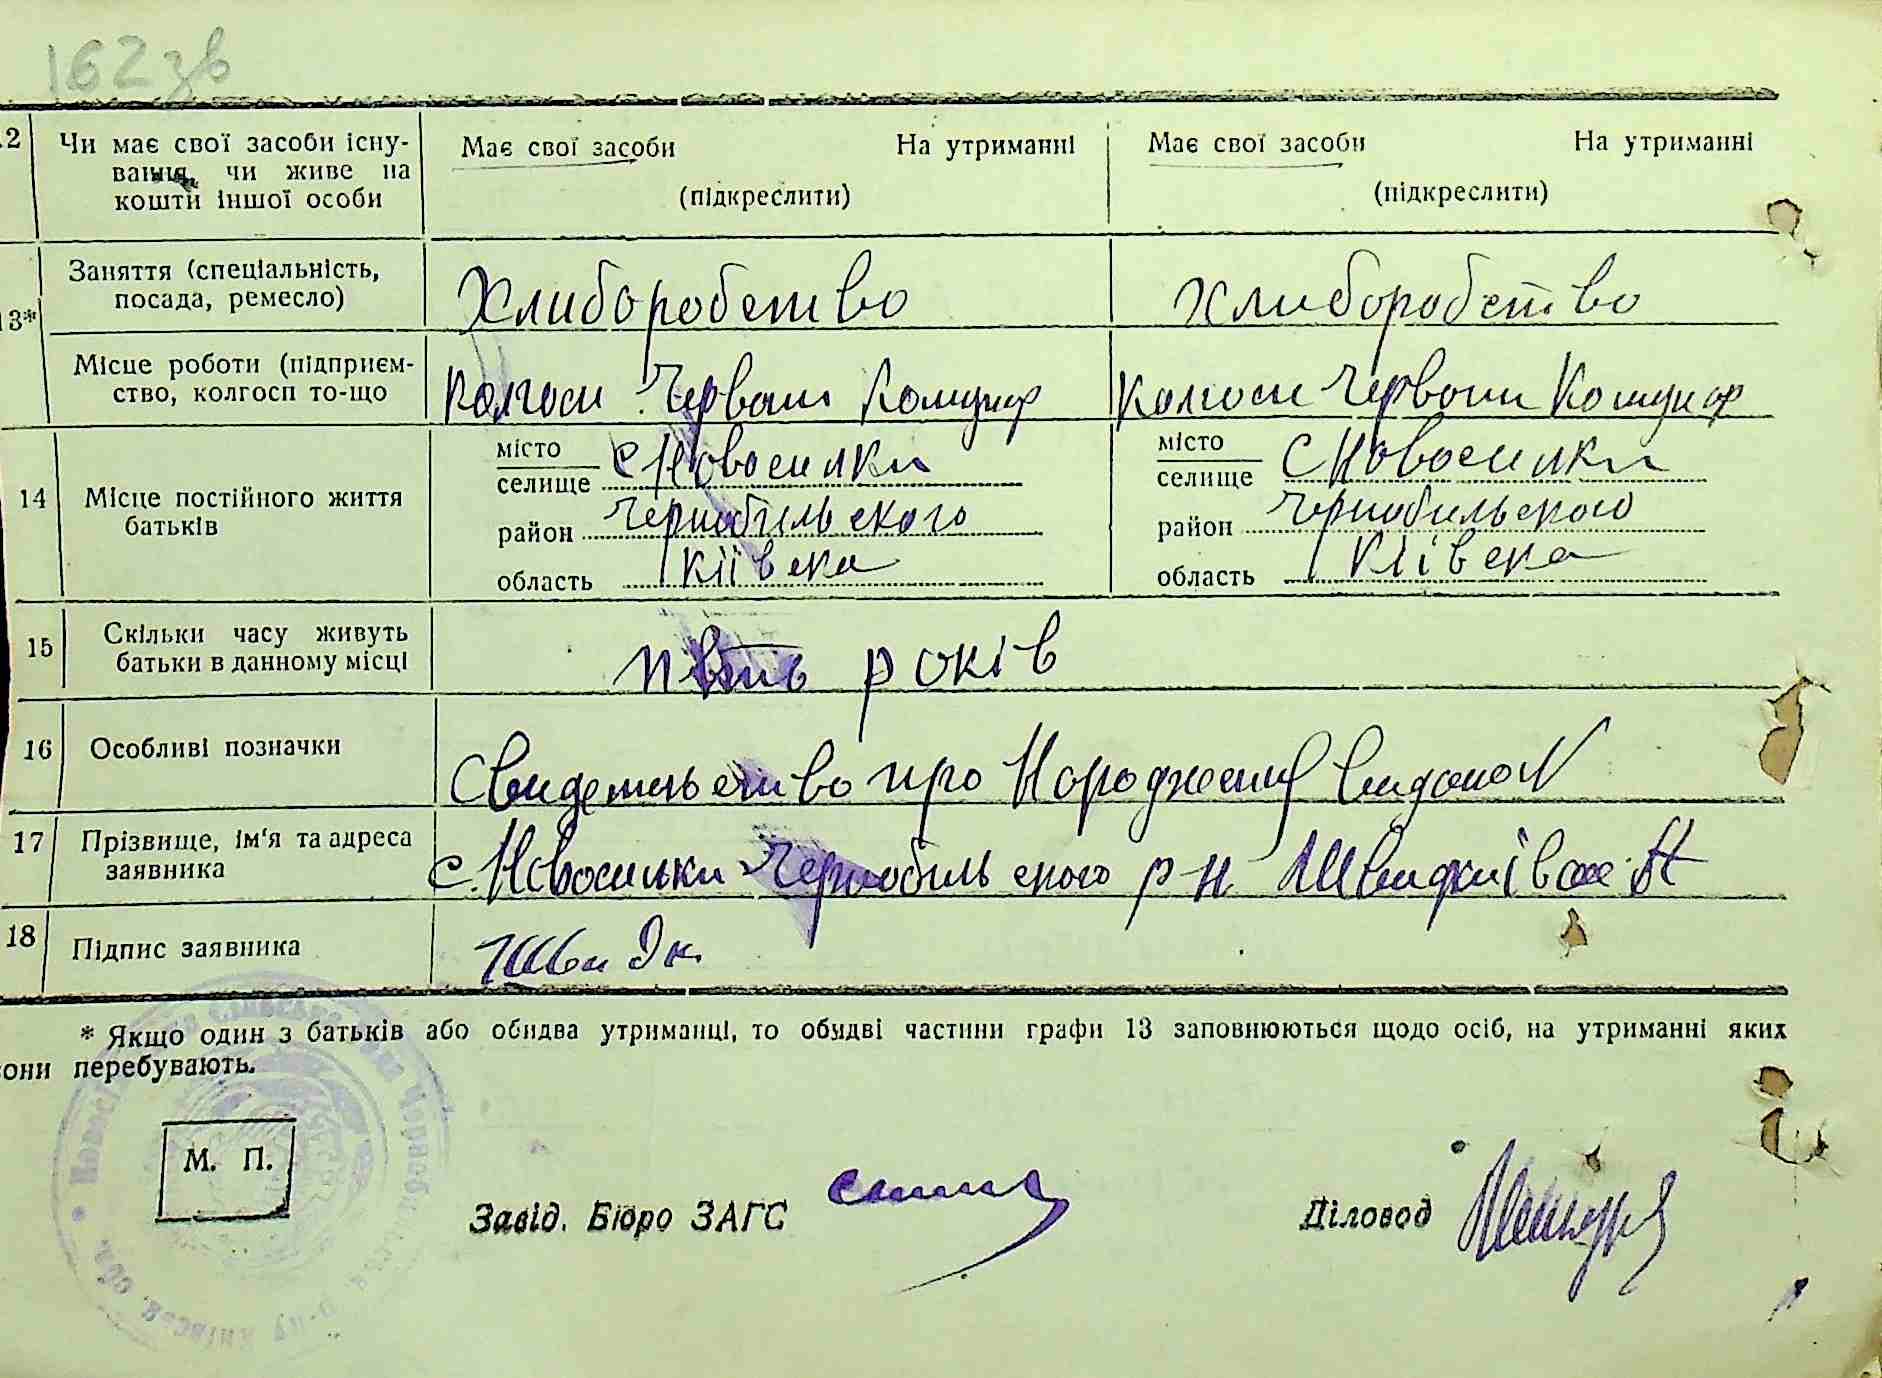 162 зв
.2 Чи має свої засоби існу- Має свої засоби На утриманні Має свої засоби На утриманні
вання, чи живе на (підкреслити) (підкреслити)
кошти іншої особи
Заняття (спеціальність, Хлиборобство Хлиборобство
посада, ремесло)
13*
Місце роботи (підприєм- Колгосп Червони Комунар Колгосп Червони Комунар
ство, колгосп то-що
14 Місце постійного життя батьків
місто
селище с Новосилки
район Чернобильского
область Киівска
місто
селище с Новосилки
район Чернобильского
область Киівска
15 Скільки часу живуть пвять років
батьки в данному місці
16 Особливі позначки Свидетельство про Народжения видано №
17 Прізвище, ім'я та адреса с. Новосилки Чернобильского р-н
заявника
18 Підпис заявника Швидк.
* Якщо один з батьків або обидва утриманці, то обидві частини графи 13 заповнюються щодо осіб, на утриманні яких
вони перебувають.
М. П.
Завід. Бюро ЗАГС Діловод